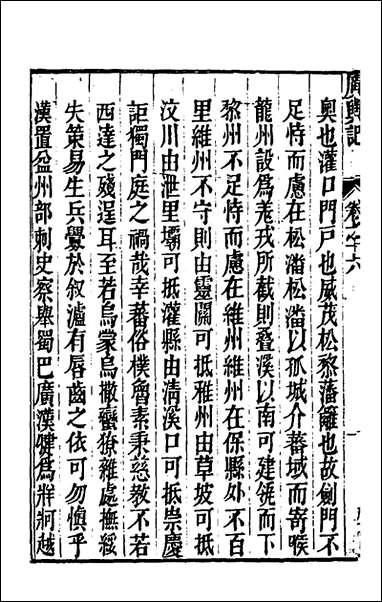 廣輿記 卷之十六
奧也灌口門戶也威茂松黎藩籬也故劍門不
足恃而慮在松潘松潘以孤城介蕃域而寄喉
龍州設爲羗戎所截則疊溪以南可建瓴而下
黎州不足恃而慮在維州維州在保縣外不百
里維州不守則由靈關可抵雅州由草坡可抵
汶川由泄里壩可抵灌縣由淸溪口可抵崇慶
詎獨門庭之禍哉幸蕃俗樸魯素秉慈敎不若
西達之殘逞耳至若烏蒙烏撒蠻獠雜處撫綏
失策易生兵釁於叙瀘有唇齒之依可勿愼乎
漢置益州部刺史察舉蜀巴廣漢犍爲牂牁越